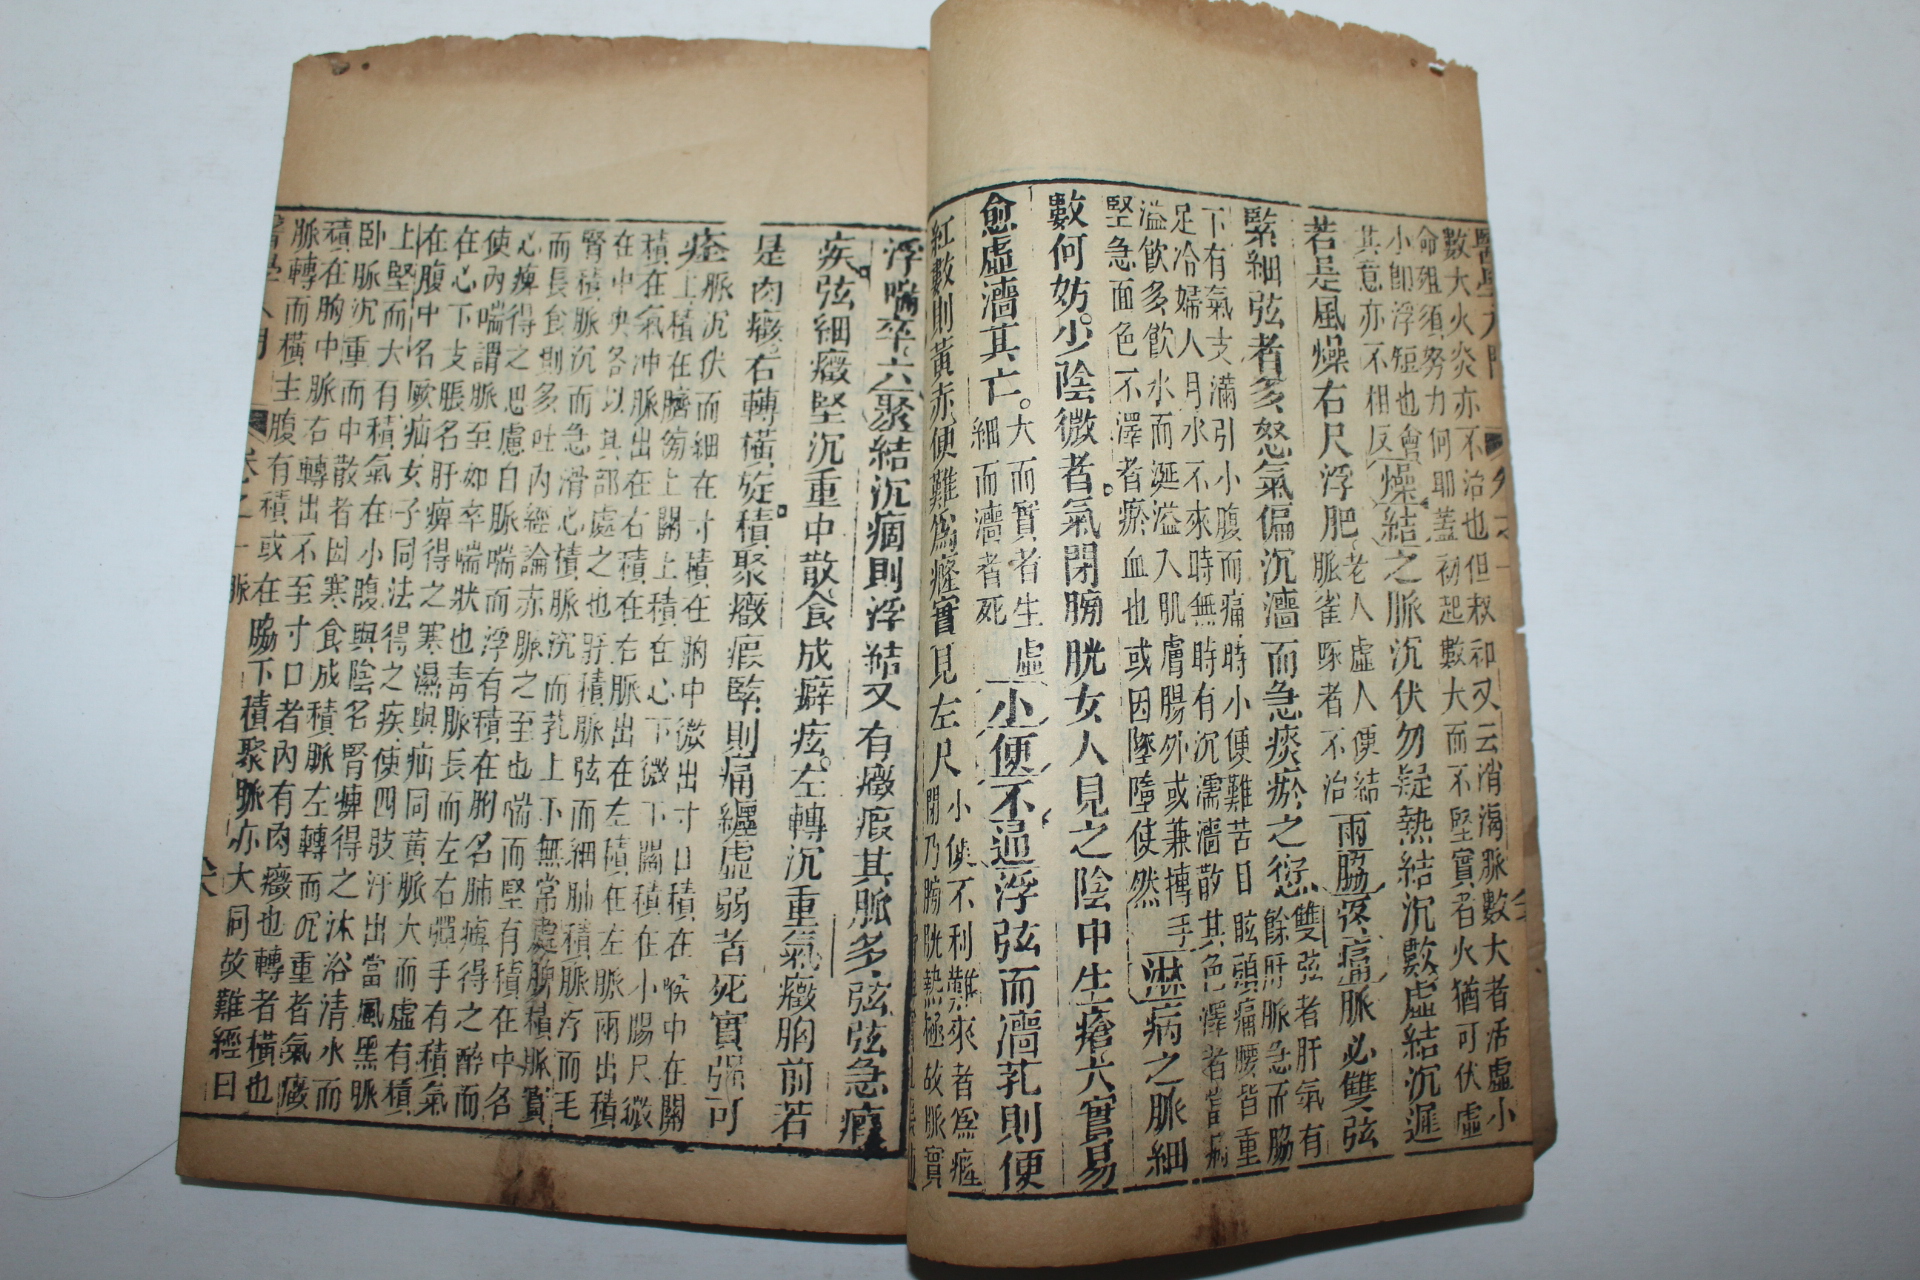 數大火炎亦不治也但叔和又云消渴脈數大者活虛小
命殂須努力何耶蓋初起數大而不堅實者火猶可伏虛
小卽浮短也會
其意亦不相反
燥結之脈沉伏勿疑熱結沉數虛結沉遲
若是風燥右尺浮肥
老人虛人便結
脈雀啄者不治
兩脇疼痛脈必雙弦
緊細弦者多怒氣偏沉濇而急痰瘀之愆
雙弦者肝氣有
餘肝脈急而脇
下有氣支滿引小腹而痛時小便難苦目眩頭痛腰皆重
足冷婦人月水不來時無時有沉濡濇散其色澤者當病
溢飲多飲水而涎溢入肌膚腸外或兼摶手
堅急面色不澤者瘀血也或因墜墮使然
淋病之脈細
數何妨少陰微者氣閉膀胱女人見之陰中生瘡大實易
愈虛濇其亡
大而實者生虛
細而濇者死
小便不通浮弦而濇芤則便
紅數則黃赤便難爲癃實見左尺
小便不利難來者爲癃
閉乃膀胱熱極故脈實
浮喘卒六聚結沉痼則浮結又有癥瘕其脈多弦弦急瘕
疾弦細癥堅沉重中散食成癖痃左轉沉重氣癥胸前若
是肉癥右轉橫旋積聚癥瘕緊則痛纏虛弱者死實强可
痊
脈沉伏而細在寸積在胸中微出寸口積在喉中在關
上積在臍旁上關上積在心下微下關積在小腸尺微
積在氣冲脈出在右積在右脈出在左積在左脈兩出積
在中央各以其部處之也肝積脈弦而細肺積脈浮而毛
腎積脈沉而急滑心積脈沉而芤上下無常處脾積脈實
而長食則多吐內經論赤脈之至也喘而堅有積在中名
心痺得之思慮白脈喘而浮有積在胸名肺痺得之醉而
使內喘謂脈至如卒喘狀也靑脈長而左右彈手有積氣
在心下支脹名肝痺得之寒濕與疝同黃脈大而虛有積
在腹中名厥疝女子同法得之疾使四肢汗出當風黑脈
上堅而大有積氣在小腹與陰名腎痺得之沐浴清水而
臥脈沉重而中散者因寒食成積脈左轉而沉重者氣癥
積在胸中脈右轉出不至寸口者內有肉癥也轉者橫也
脈轉而橫主腹有積或在脇下積聚脈亦大同故難經曰